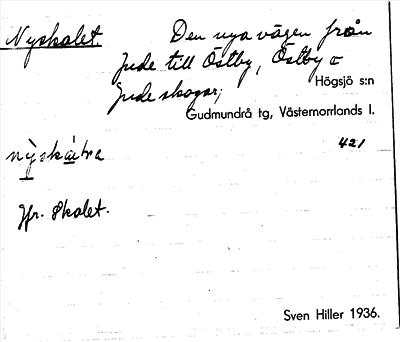 Nyskalet. Den nya vägen från
Jude till Östby, Östby o
Högsjö s:n
Jude skogar;
Gudmundrå tg, Västernorrlands l.
421
Jfr. Skalet.
Sven Hiller 1936.